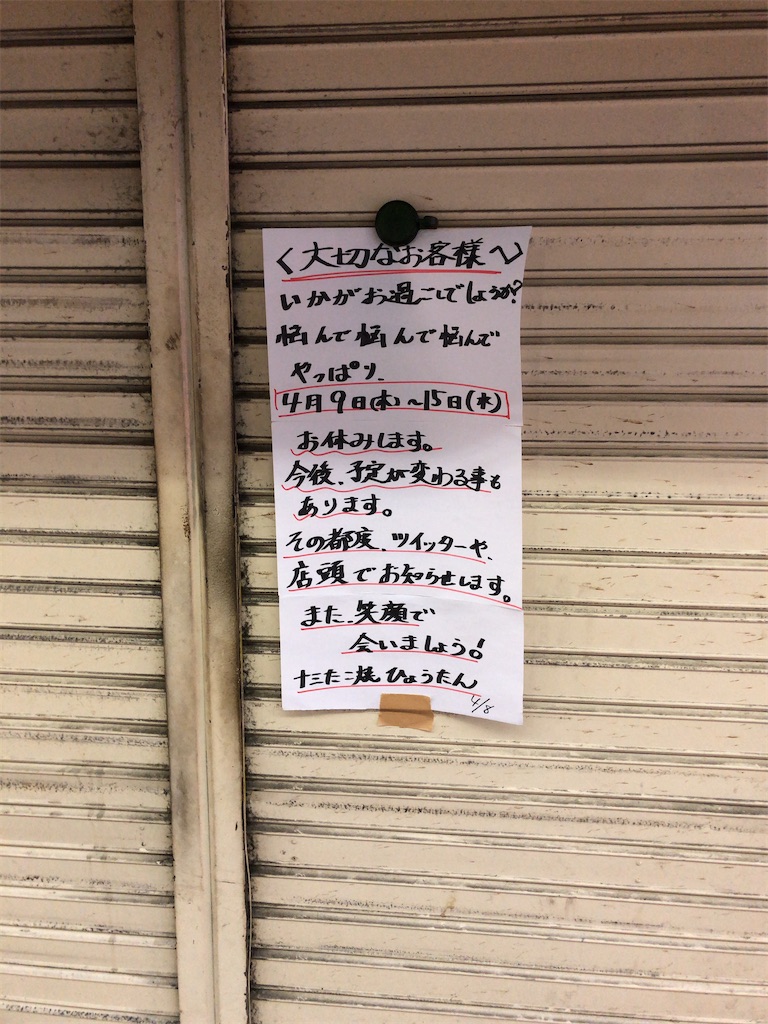 <大切なお客様へ>
いかがお過ごしでしょうか?
悩んで悩んで悩んで
やっぱり、
4月9日(木)~15日(水)
お休みします。
今後、予定が変わる事も
あります。
その都度、ツイッターや、
店頭でお知らせします。
また、笑顔で
会いましょう!
十三たこ焼ひょうたん
4/8